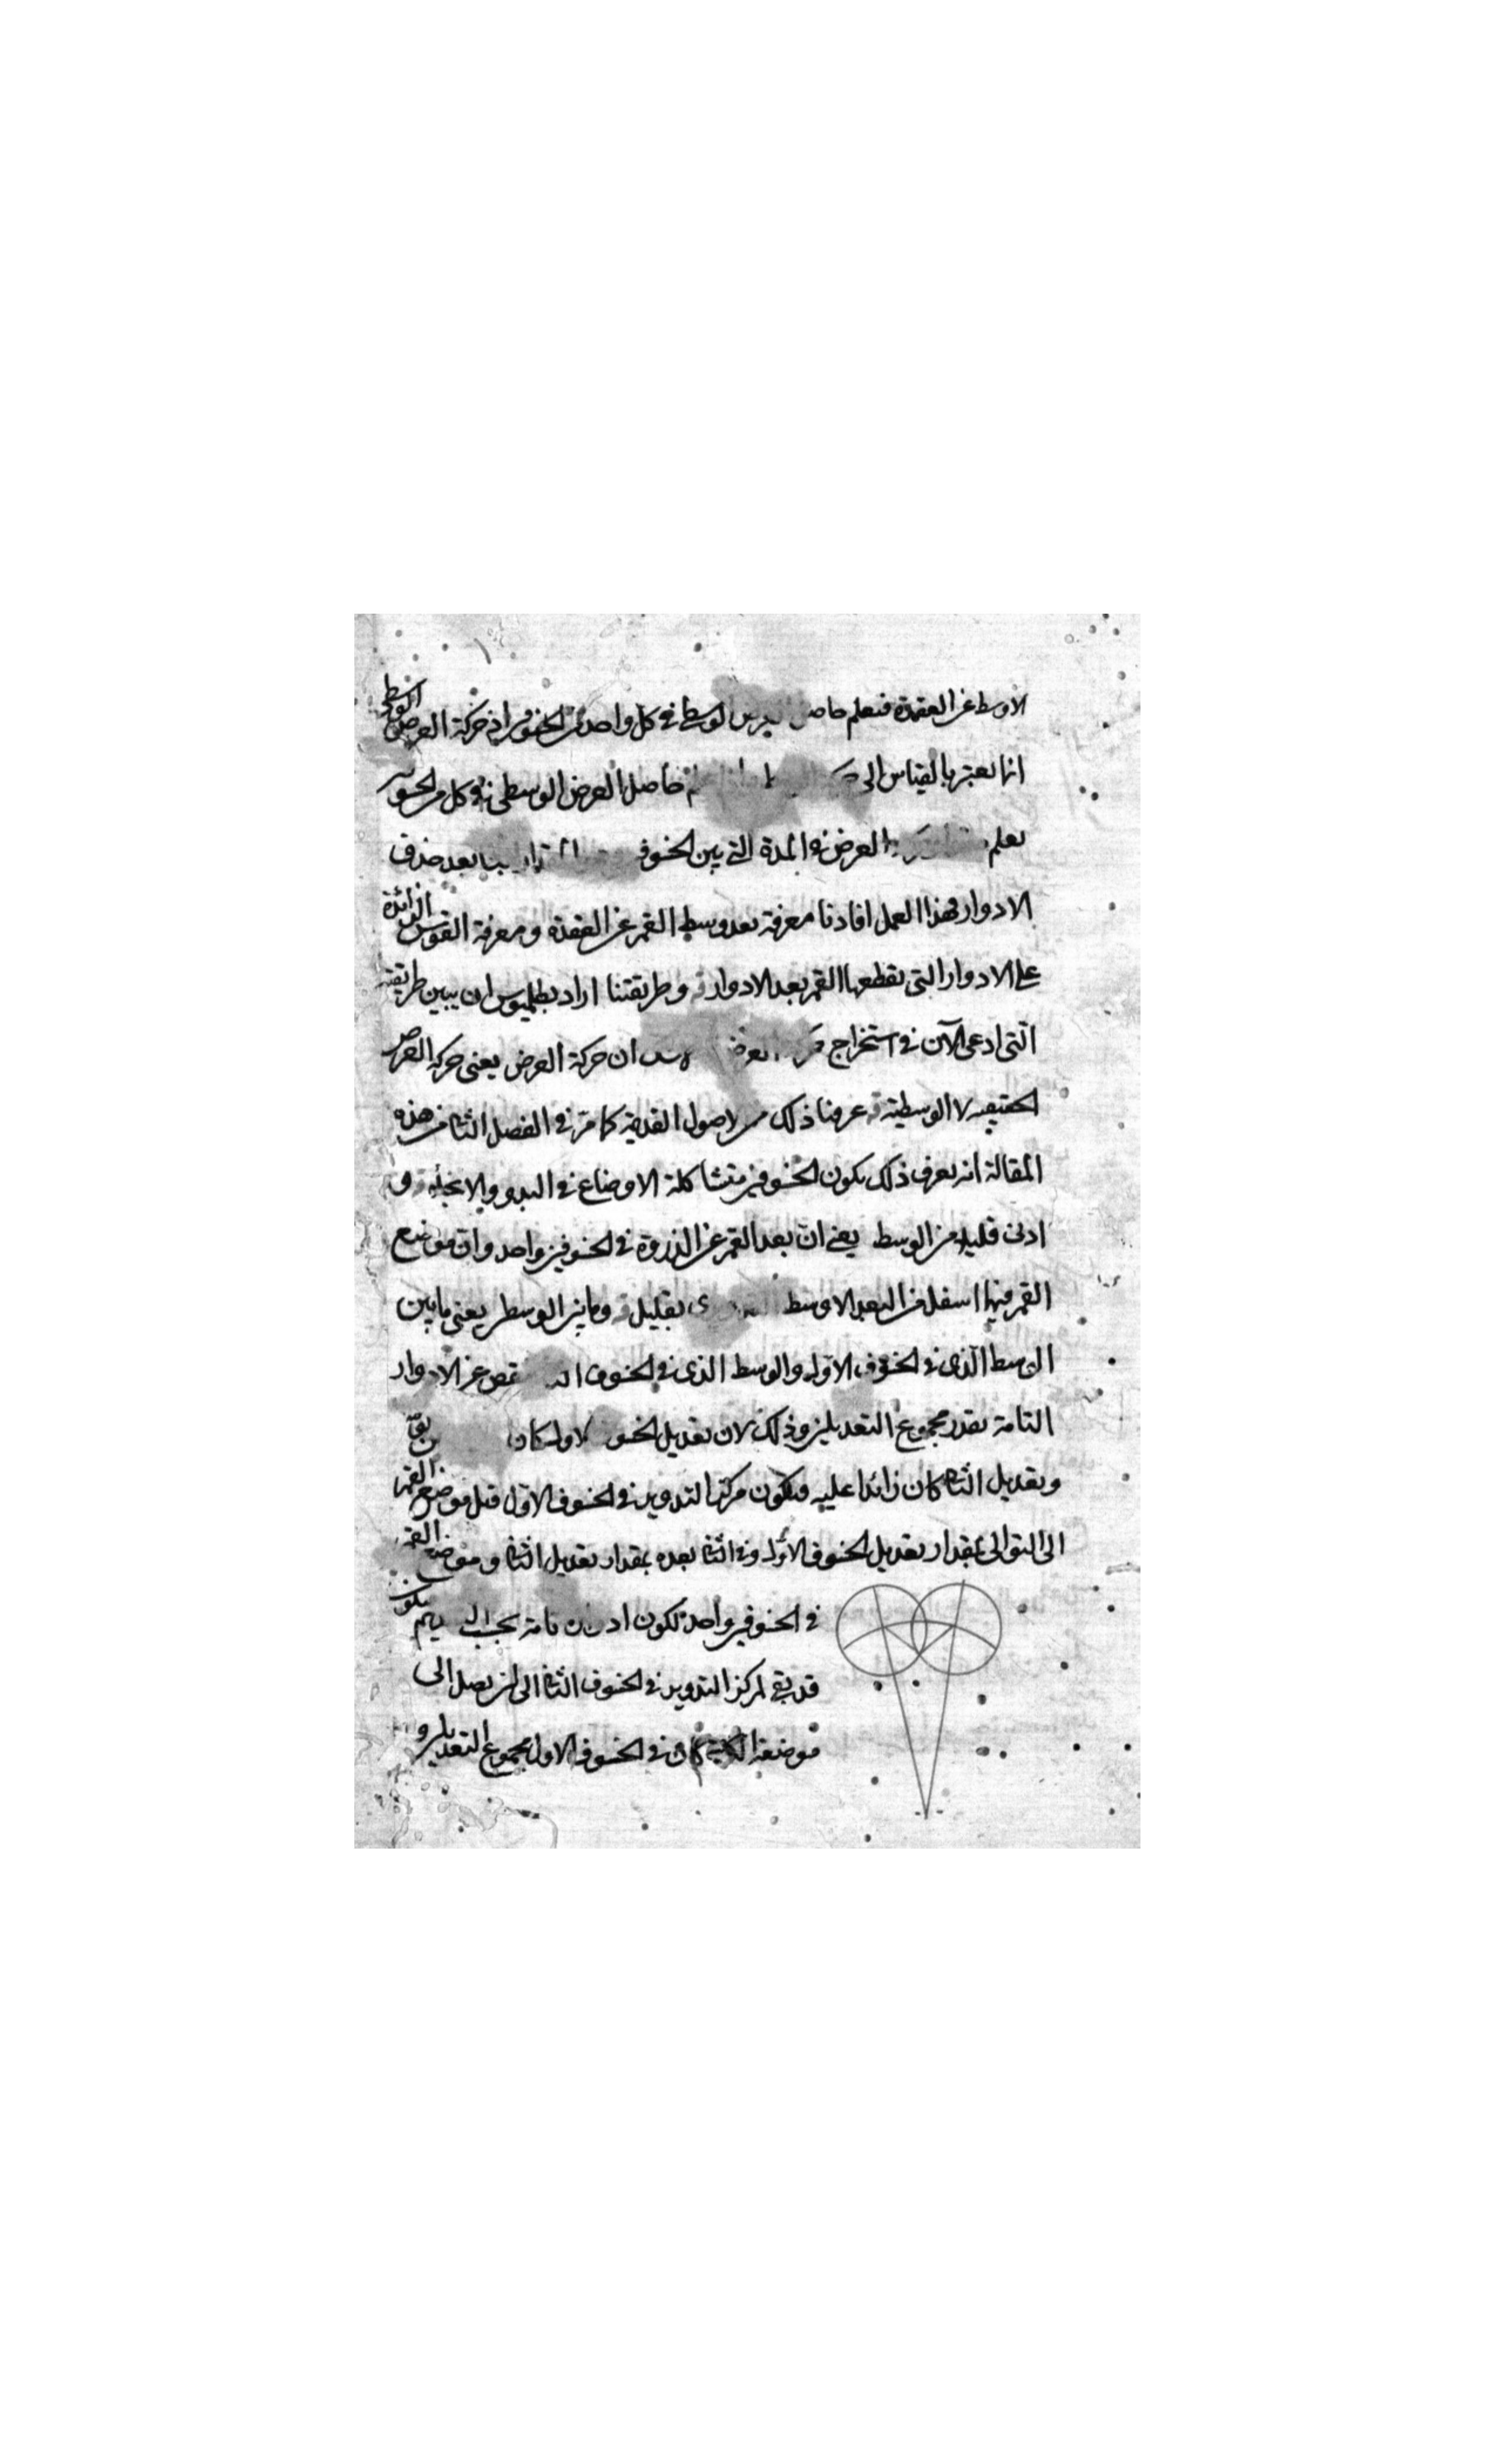 الاوسط عن العقدة فنعلم حاصل العرض الوسطى فى كل واحد من الخسوفين اذ حركة العرض الوسطى
انما يعتبر بالقياس الى حاصل العرض الوسطى فى كل من الخسوفين
يعلم العرض فى المدة التى بين الخسوفين بعد حذف
الادوار فهذا العمل افادنا معرفة بعد وسط القمر عن العقدة ومعرفة القوس الزائدة
على الادوار التى يقطعها القمر بعد الادوار وطريقتنا اراد بطلميوس ان يبين طريقته
التى ادعى الآن فى استخراج ان حركة العرض يعنى حركة العرض
الحقيقية لا الوسطية عرفنا ذلك من الاصول القديمة كما مر فى الفصل الثانى من هذه
المقالة انه يعرف ذلك بكون الخسوفين متشاكلة الاوضاع فى البدو والانجلاء
ادنى قليلا من الوسط يعنى ان بعد القمر عن الذروة فى الخسوفين واحد وان موضع
القمر فيهما اسفل من البعد الاوسط بقليل وما بين الوسطين يعنى ما بين
الوسط الذى فى الخسوف الاول والوسط الذى فى الخسوف ينقص عن الادوار
التامة بقدر مجموع التعديلين وذلك لان تعديل الخسوف الاول كان
وتعديل الثانى كان زائدا عليه فيكون مركز التدوير فى الخسوف الاول قبل موضع القمر
الى التوالى بمقدار تعديل الخسوف الاول وفى الثانى بعده بمقدار تعديل الثانى وموضع القمر
فى الخسوفين واحد لكون تامة بحسب فيكون
قد بقى لمركز التدوير فى الخسوف الثانى الى ان يصل الى
موضعه كان فى الخسوف الاول مجموع التعديلين و